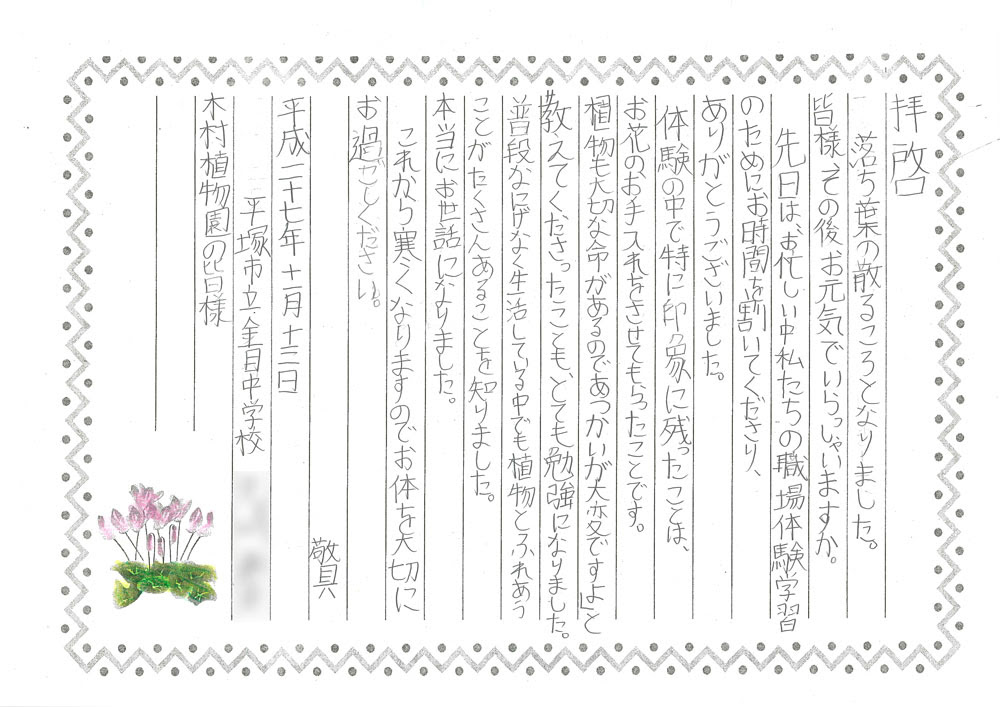 拝啓
落ち葉の散るころとなりました。
皆様、その後お元気でいらっしゃいますか。
先日は、お忙しい中私たちの職場体験学習
のためにお時間を割いてくださり、
ありがとうございました。
体験の中で特に印象に残ったことは、
お花のお手入れをさせてもらったことです。
植物も大切な命があるのであつかいが大変ですよ」と
教えてくださったことも、とても勉強になりました。
普段なにげなく生活している中でも植物とふれあう
ことがたくさんあることを知りました。
本当にお世話になりました。
これから寒くなりますのでお体を大切に
お過ごしください。
敬具
平成二十七年十一月十三日
平塚市立金目中学校
木村植物園の皆様